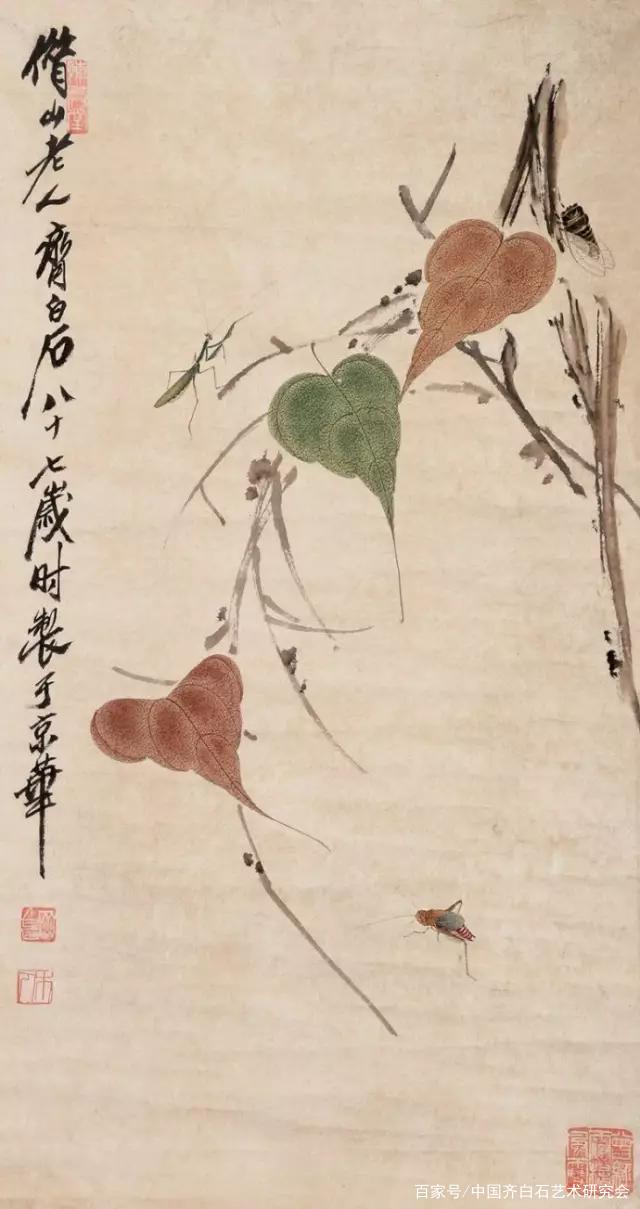 借山老人齊白石八十七歲时製于京華
百家号/中国齐白石艺术研究会